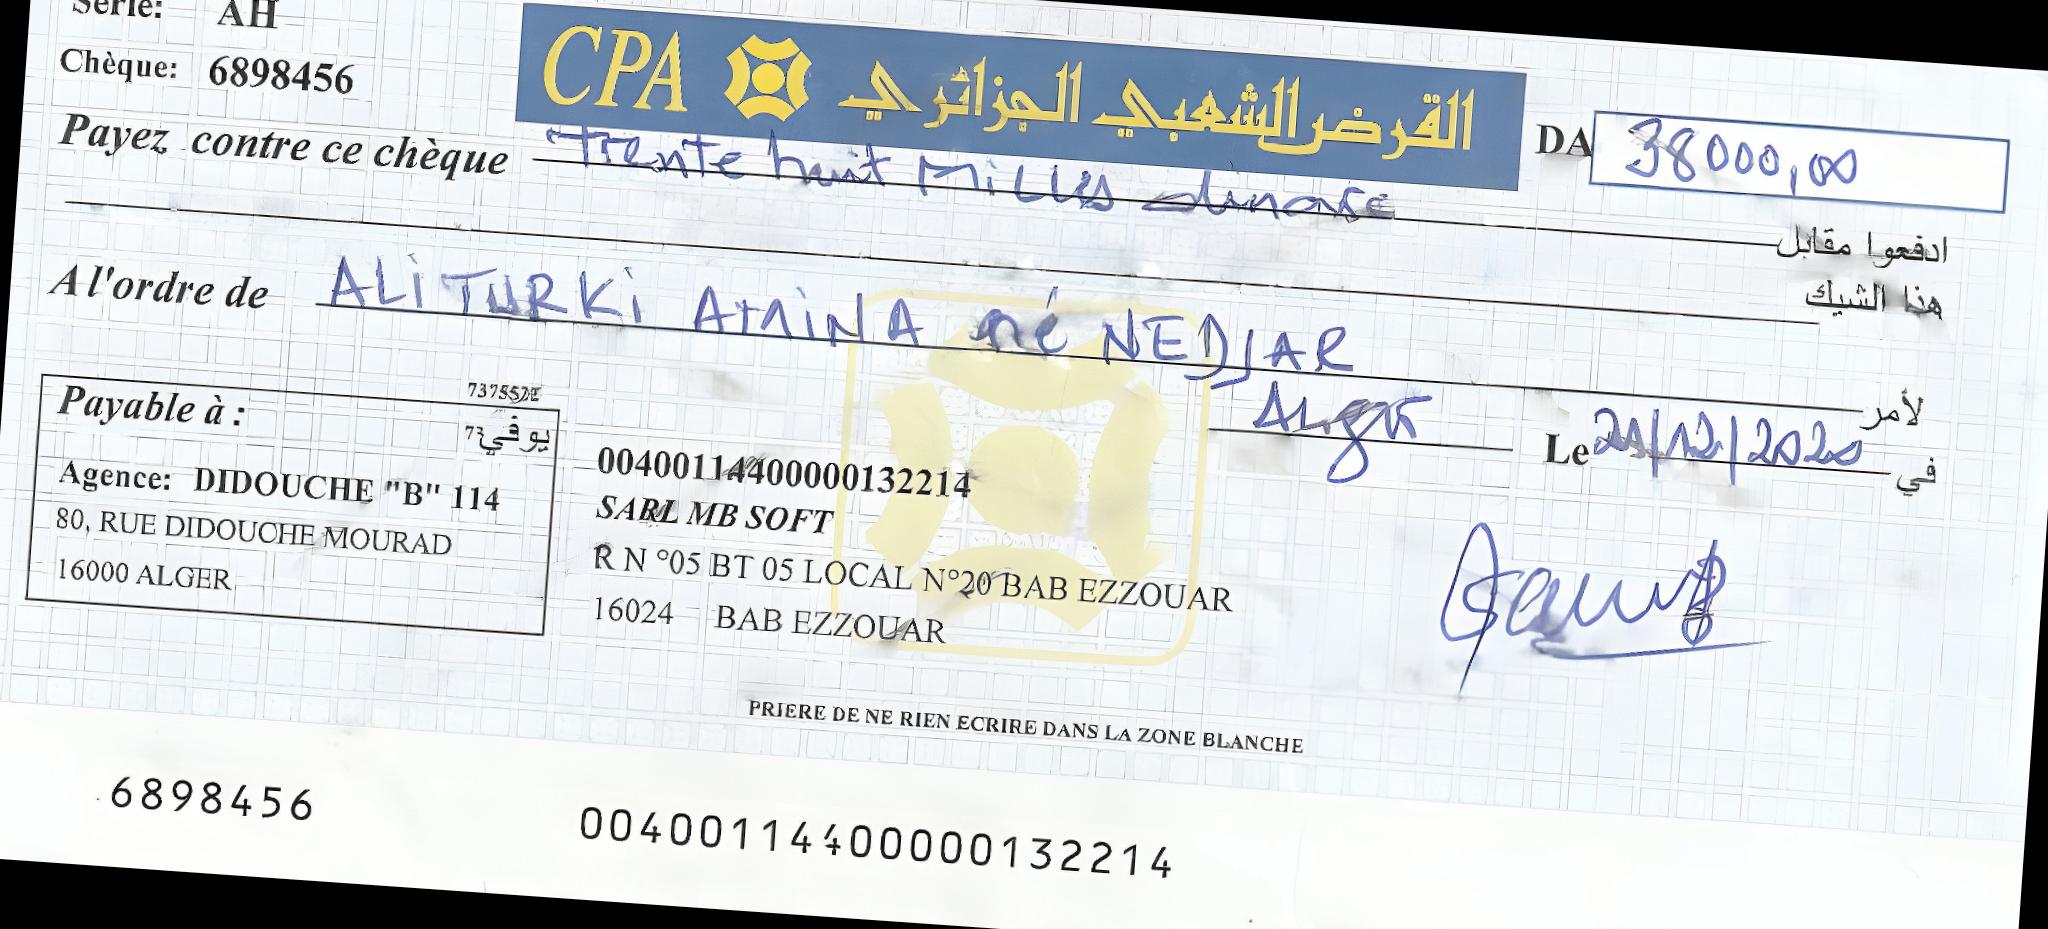 Série: AH
Chèque: 6898456
CPA القرض الشعبي الجزائري
DA 38000,00
Payez contre ce chèque Trente huit Milles dinars
ادفعوا مقابل
هذا الشيك
A l'ordre de ALI TURKI AMINA né NEDJAR
لأمر
Alger Le 21/12/2020 في
Payable à :
يوفي
Agence: DIDOUCHE "B" 114
80, RUE DIDOUCHE MOURAD
16000 ALGER
00400114400000132214
SARL MB SOFT
R N °05 BT 05 LOCAL N°20 BAB EZZOUAR
16024 BAB EZZOUAR
PRIERE DE NE RIEN ECRIRE DANS LA ZONE BLANCHE
6898456 00400114400000132214